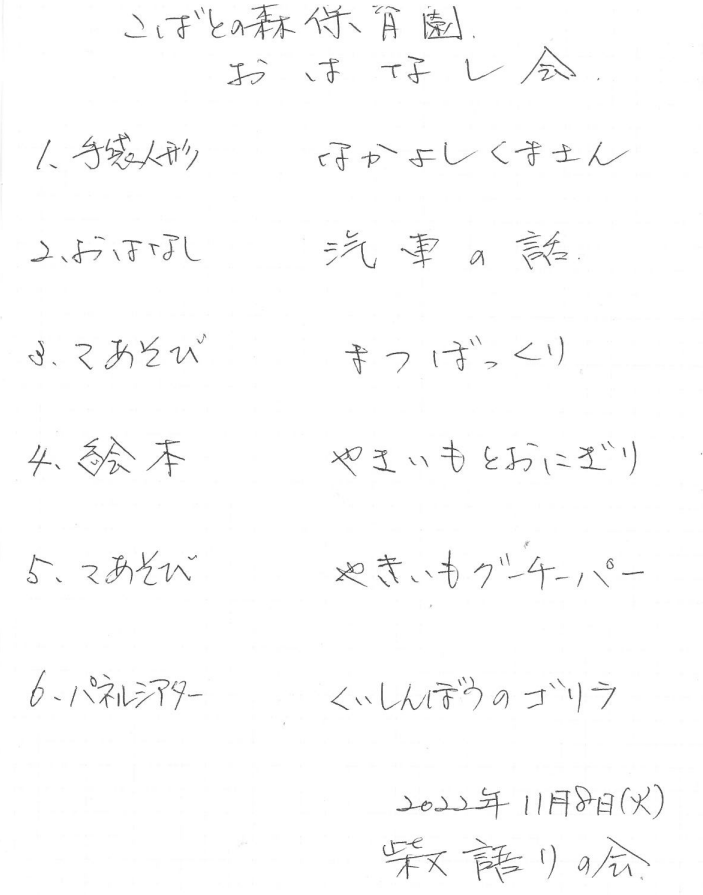 こばとの森保育園.
おはなし会.
1、手袋人形 なかよしくまさん
2、おはなし 汽車の話.
3、てあそび まつぼっくり
4、絵本 やきいもとおにぎり
5、てあそび やきいもグーチーパー
6、パネルシアター くいしんぼうのゴリラ
2022年11月8日(火)
柴又語りの会.